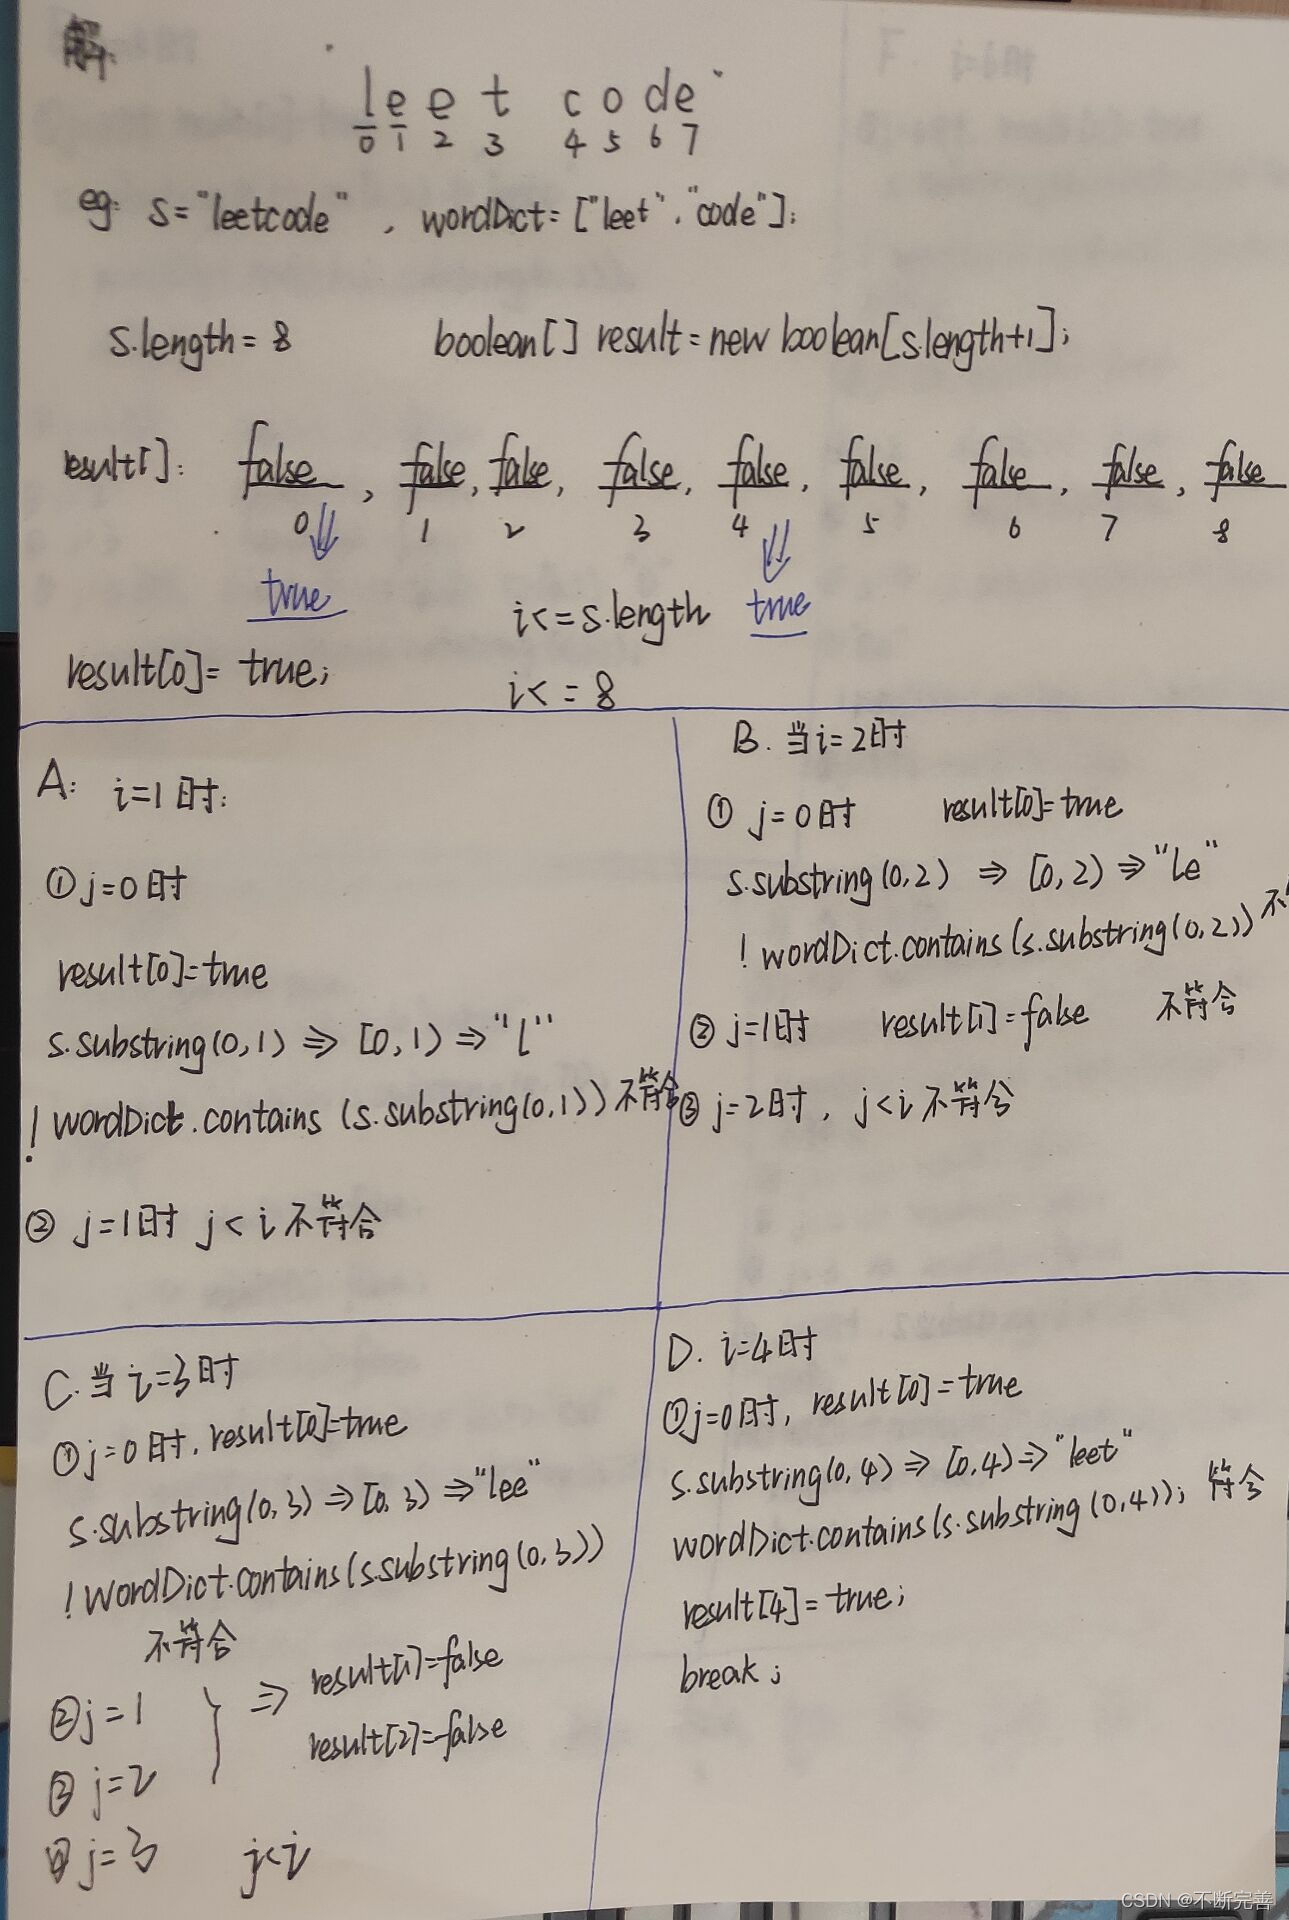 解:
leet code
0 1 2 3 4 5 6 7
eg: s="leetcode", wordDict=["leet","code"];
s.length=8 boolean[] result=new boolean[s.length+1];
result[]: false, false, false, false, false, false, false, false, false
0 1 2 3 4 5 6 7 8
true true
i<=s.length
result[0]=true;
i<=8
A: i=1时:
①j=0时
result[0]=true
s.substring(0,1)⇒[0,1)⇒"l"
!wordDict.contains(s.substring(0,1))不符合
② j=1时 j<i不符合
B. 当i=2时
① j=0时 result[0]=true
s.substring(0,2)⇒[0,2)⇒"le"
!wordDict.contains(s.substring(0,2))不
② j=1时 result[1]=false 不符合
③ j=2时, j<i不符合
C.当i=3时
①j=0时, result[0]=true
s.substring(0,3)⇒[0,3)⇒"lee"
!wordDict.contains(s.substring(0,3))
不符合
②j=1 ⇒ result[1]=false
③j=2 result[2]=false
④j=3 j<i
D. i=4时
①j=0时, result[0]=true
s.substring(0,4)⇒[0,4)⇒"leet"
wordDict.contains(s.substring(0,4)); 符合
result[4]=true;
break;
CSDN @不断完善